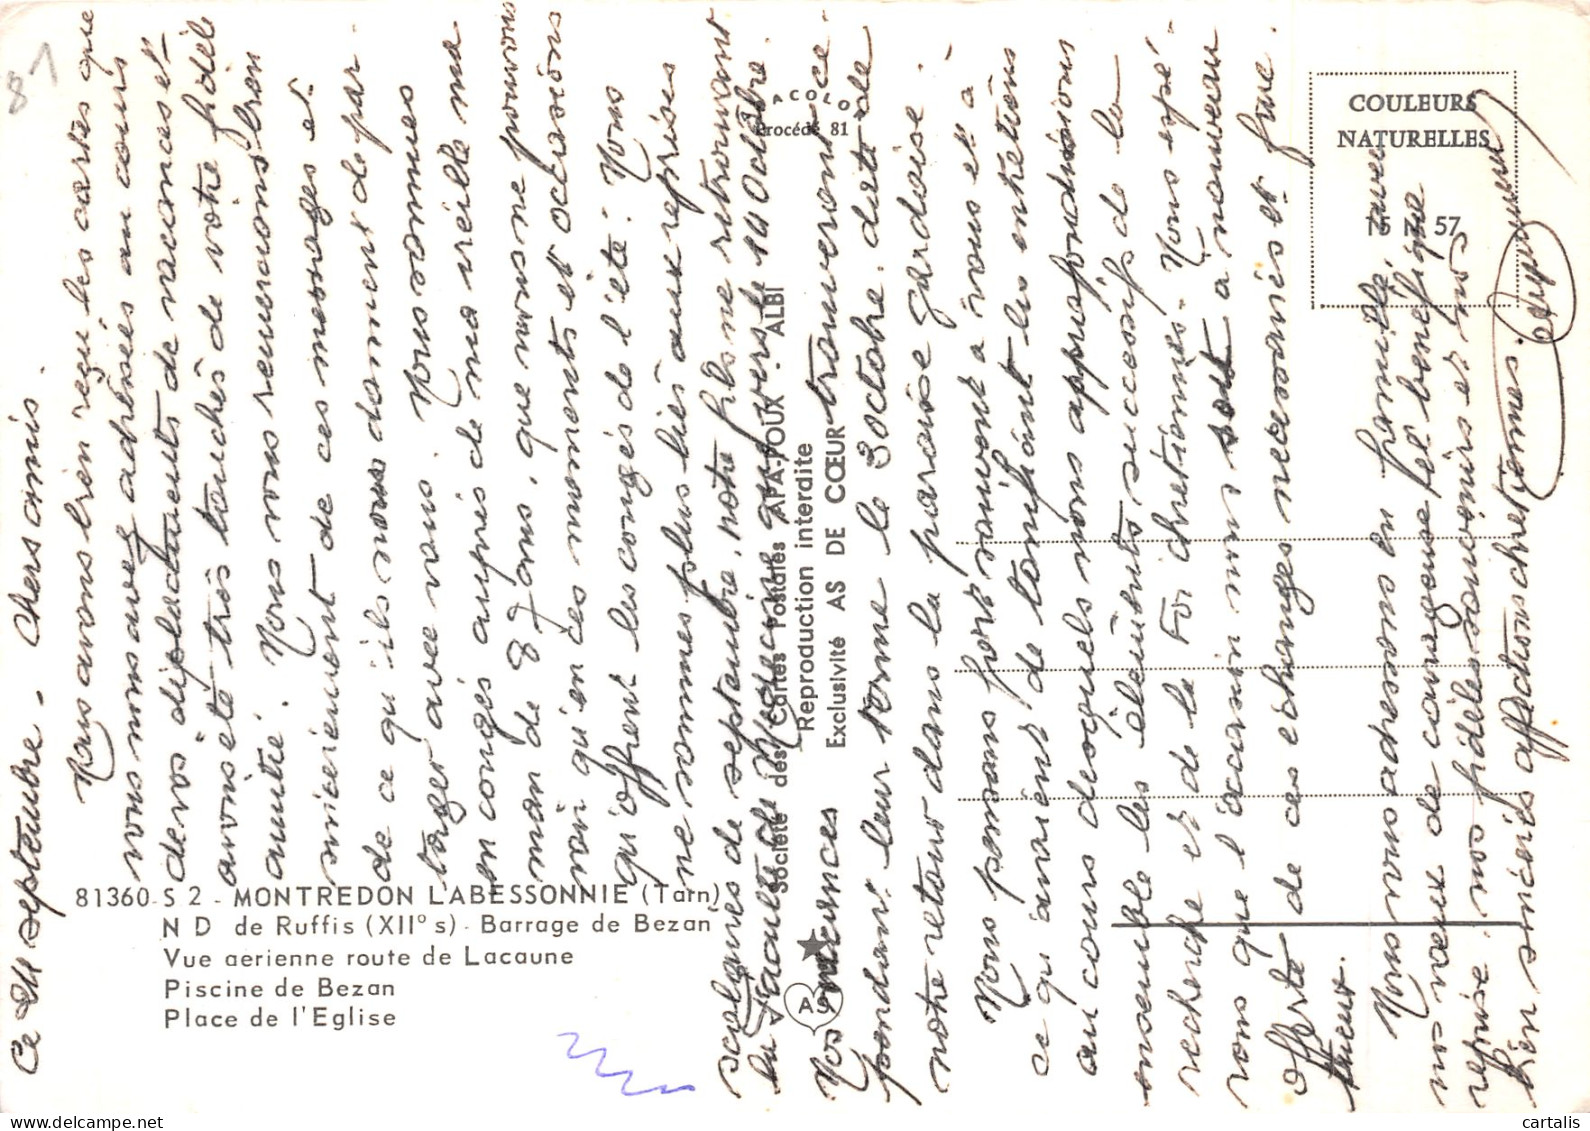 81
Ce 24 septembre - Chers amis.
Nous avons bien reçu les cartes que
vous nous avez adressées au cours
de vos "déplacements de vacances et
avons été très touchés de votre fidèle
amitié. Nous vous remercions bien
sincèrement de ces messages et
de ce qu'ils nous donnent de par-
tager avec vous. Nous sommes
en congés auprès de ma vieille ma
man de 87 ans, que nous ne pouvons
voir qu'en ces moments et occasions
qu'offrent les congés de l'été. Nous
ne sommes plus liés aux reprises
scolaires de septembre, notre fils ne retrouvant
la Faculté de Médecine que vers le 10 Octobre.
Nos vacances trouveront ce
pendant leur terme le 3 octobre, date de
notre retour dans la paroisse
Nous pensons fort souvent à vous et à
ce qu'avaient de tonifiant les entretiens
au cours desquels nous approfondissions
ensemble les éléments successifs de la
recherche et de la Foi chrétiennes. Nous espé-
rons que l'occasion nous soit à nouveau
offerte de ces échanges nécessaires et fruc-
tueux.
Nous vous adressons en famille, avec
nos vœux de courageuse et bénéfique
reprise, nos fidèles souvenirs et nos
bien sincères affections chrétiennes.
81360 - S 2 - MONTREDON LABESSONNIE (Tarn)
N D de Ruffis (XII° s) - Barrage de Bezan
Vue aerienne route de Lacaune
Piscine de Bezan
Place de l'Eglise
ACOLO
Procédé 81
Société des Cartes Postales APA-POUX - ALBI
Reproduction interdite
Exclusivité AS DE CŒUR
AS
COULEURS
NATURELLES
57
cartalis